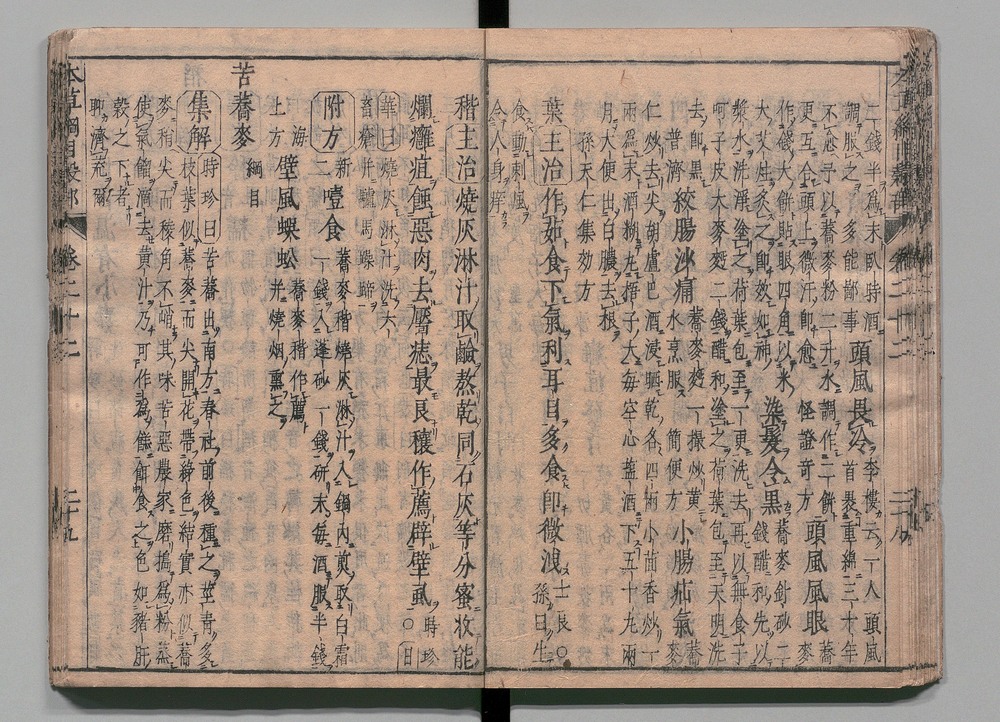 二錢半爲末臥時酒 頭風畏冷 李樓云一人頭風
調服之多能鄙事 首裹重綿三十年
不愈予以蕎麥粉二升水調作二餅 蕎
更互合頭上微汗卽愈 怪證奇方 頭風風眼 麥
作錢大餅貼眼四角以米
大艾炷灸之卽效如神 染髮令黑 蕎麥針砂二
錢醋和先以
漿水洗淨塗之荷葉包至一更洗去再以無食子
訶子皮大麥麪二錢醋和塗之荷葉包至天明洗
去卽黑 普濟 絞腸沙痛 蕎麥麪一撮炒黃
水烹服 簡便方 小腸疝氣 蕎麥
仁炒去尖胡盧巴酒浸晒乾各四兩小茴香炒一
兩爲末酒糊丸梧子大每空心鹽酒下五十丸兩
月大便出白膿去根
孫天仁集效方
葉 主治 作茹食下氣利耳目多食卽微洩 士良〇孫曰生
食動刺風
令人身痒
稭 主治 燒灰淋汁取鹼熬乾同石灰等分蜜收能
爛癰疽蝕惡肉去靨痣最良穰作薦辟壁虱 時珍〇日
華曰燒灰淋汁洗六
畜瘡并驢馬躁蹄
附方 新二 噎食 蕎麥稭燒灰淋汁入鍋內煎取白霜
一錢入蓬砂一錢研末每酒服半錢
海上方 壁風蜈蚣 蕎麥稭作薦
并燒烟熏之
苦蕎麥 綱目
集解 時珍曰苦蕎出南方春社前後種之莖青多
枝葉似蕎麥而尖開花帶綠色結實亦似蕎
麥稍尖而稜角不峭其味苦惡農家磨擣爲粉蒸
使氣餾滴去黃汁乃可作爲餻餌食之色如豬肝
穀之下者
聊濟荒爾
本草綱目穀部 卷之二十二 二十九